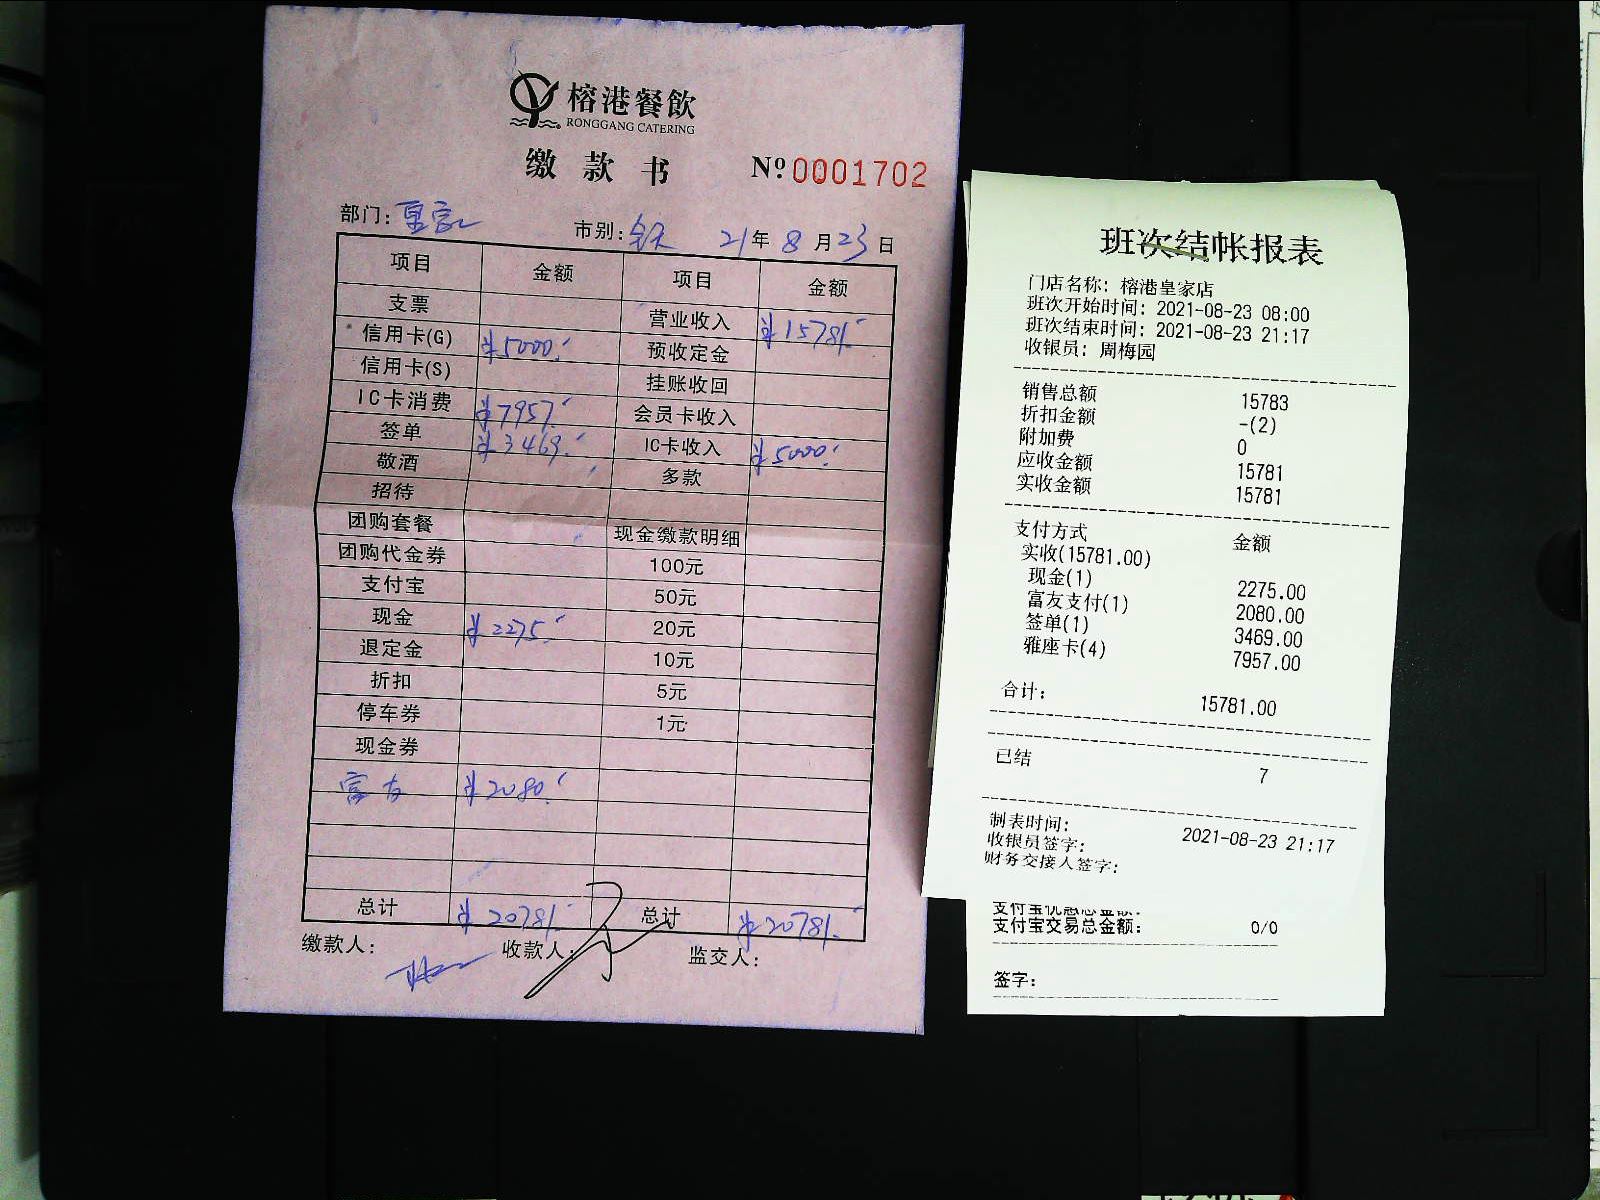 榕港餐飲
RONGGANG CATERING
缴款书 Nº 0001702
部门: 皇家 市别: 全天 21年 8月 23日
项目 金额 项目 金额
支票 营业收入 ¥15781.
信用卡(G) ¥5000. 预收定金
信用卡(S) 挂账收回
IC卡消费 ¥7957. 会员卡收入
签单 ¥3469. IC卡收入 ¥5000.
敬酒 多款
招待
团购套餐 现金缴款明细
团购代金券 100元
支付宝 50元
现金 ¥2275. 20元
退定金 10元
折扣 5元
停车券 1元
现金券
富友 ¥2080.
总计 ¥20781. 总计 ¥20781.
缴款人: 收款人: 监交人:
班次结帐报表
门店名称: 榕港皇家店
班次开始时间: 2021-08-23 08:00
班次结束时间: 2021-08-23 21:17
收银员: 周梅园
销售总额 15783
折扣金额 -(2)
附加费 0
应收金额 15781
实收金额 15781
支付方式 金额
实收(15781.00)
现金(1) 2275.00
富友支付(1) 2080.00
签单(1) 3469.00
雅座卡(4) 7957.00
合计: 15781.00
已结 7
制表时间: 2021-08-23 21:17
收银员签字:
财务交接人签字:
支付宝优惠总金额:
支付宝交易总金额: 0/0
签字: